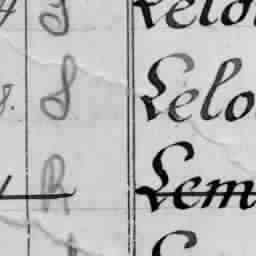 S Lelo
8. S Lelo
R Lem